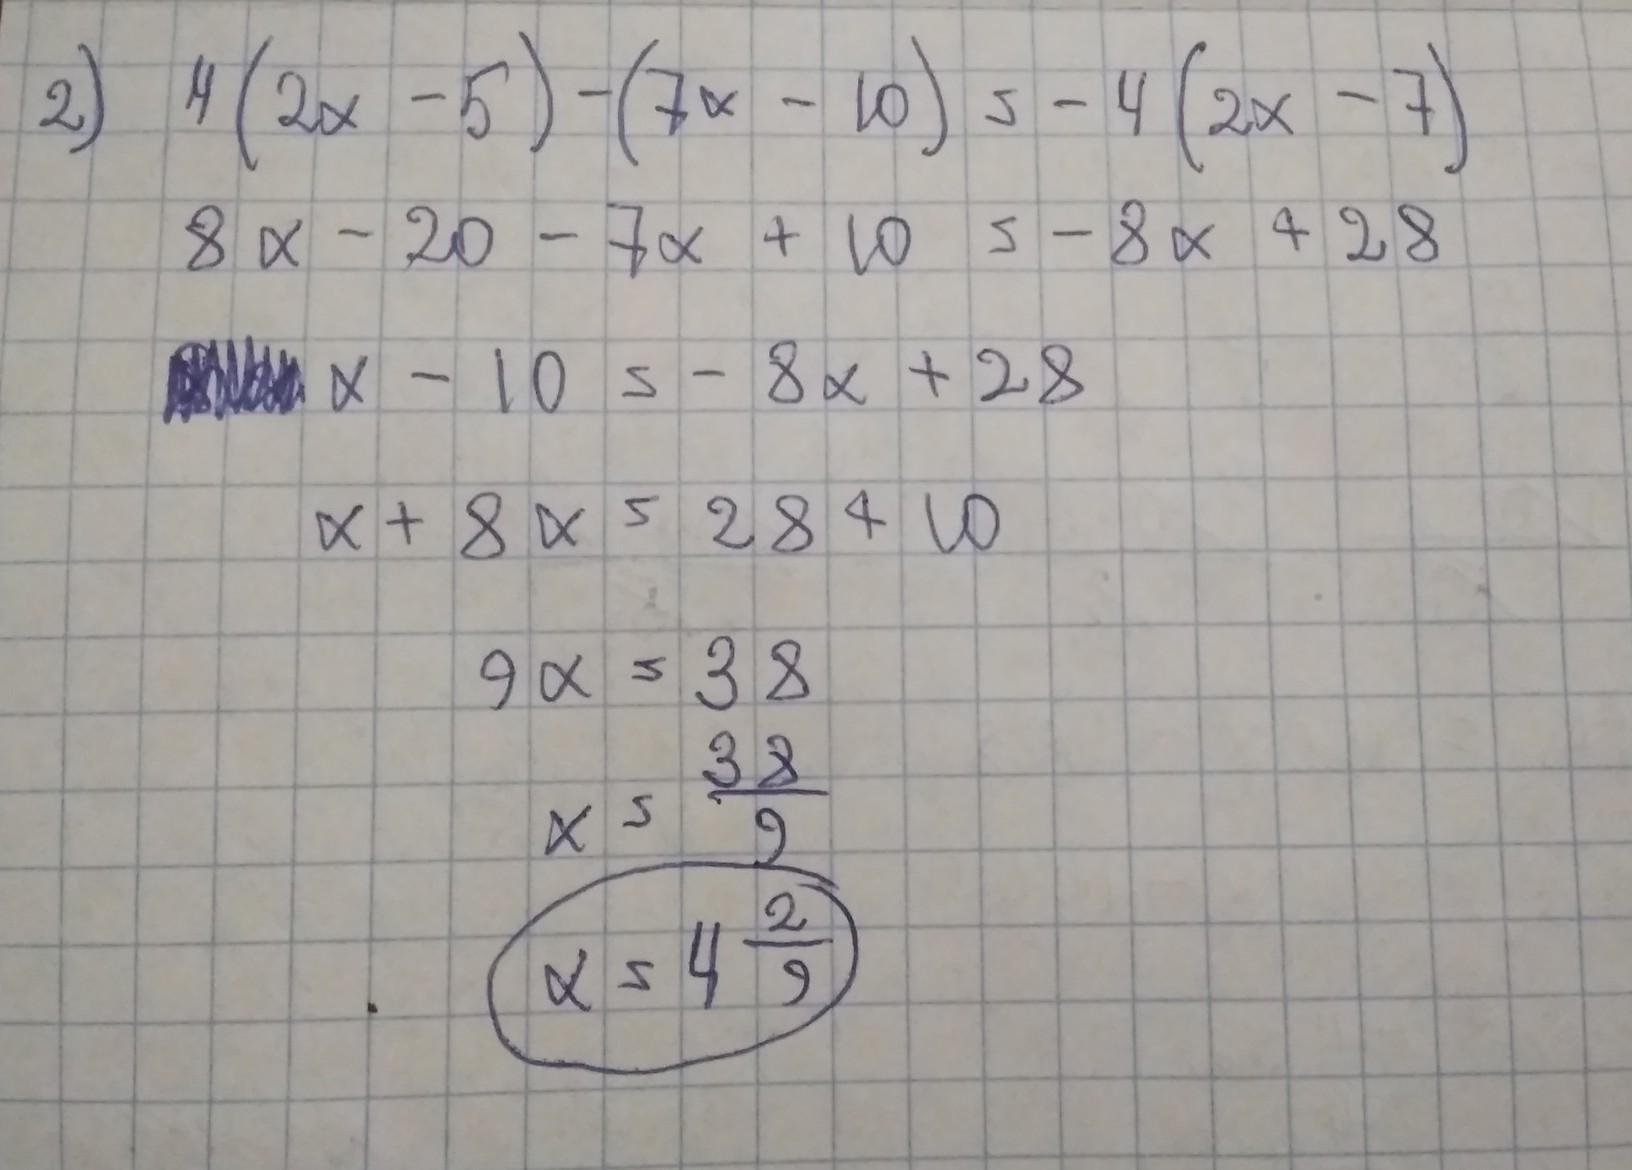 2) 4(2x - 5) - (7x - 10) = -4(2x - 7)
8x - 20 - 7x + 10 = -8x + 28
x - 10 = -8x + 28
x + 8x = 28 + 10
9x = 38
x = 38/9
x = 4 2/9